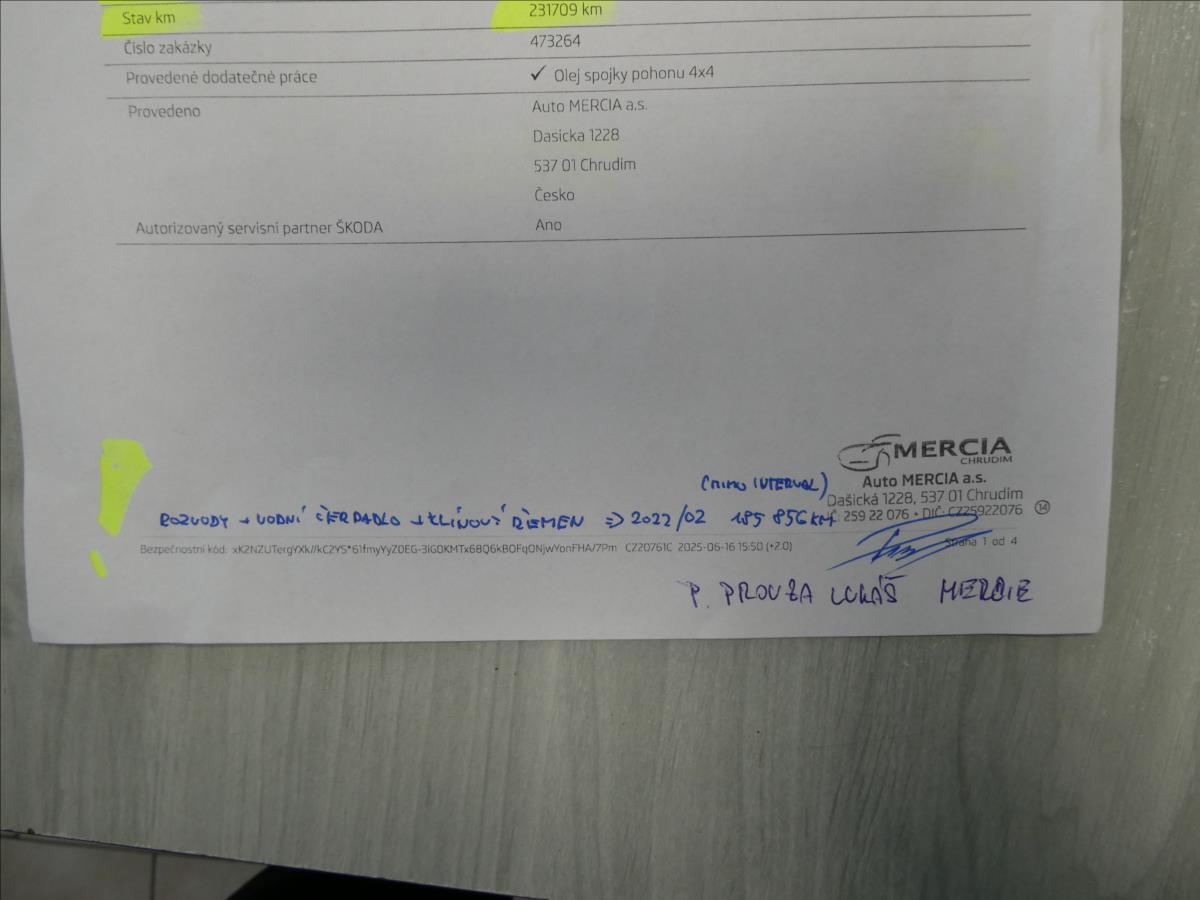 Stav km 231709 km
Číslo zakázky 473264
Provedené dodatečné práce ✓ Olej spojky pohonu 4x4
Provedeno Auto MERCIA a.s.
Dasicka 1228
537 01 Chrudim
Česko
Autorizovaný servisní partner ŠKODA Ano
MERCIA
CHRUDIM
Auto MERCIA a.s.
Dašická 1228, 537 01 Chrudim
IČ: 259 22 076 • DIČ: CZ25922076 14
(MIMO INTERVAL)
ROZVODY + VODNÍ ČERPADLO + KLÍNOVÝ ŘEMEN => 2022/02 185 856 KM
Bezpečnostní kód: xK2NZUTergYXk//kC2YS*61fmyYyZ0EG-3iG0KMTx68Q6kBOFqONjwYonFHA/7Pm CZ20761C 2025-06-16 15:50 (+2.0) Strana 1 od 4
P. PROUZA LUKÁŠ MERCIE